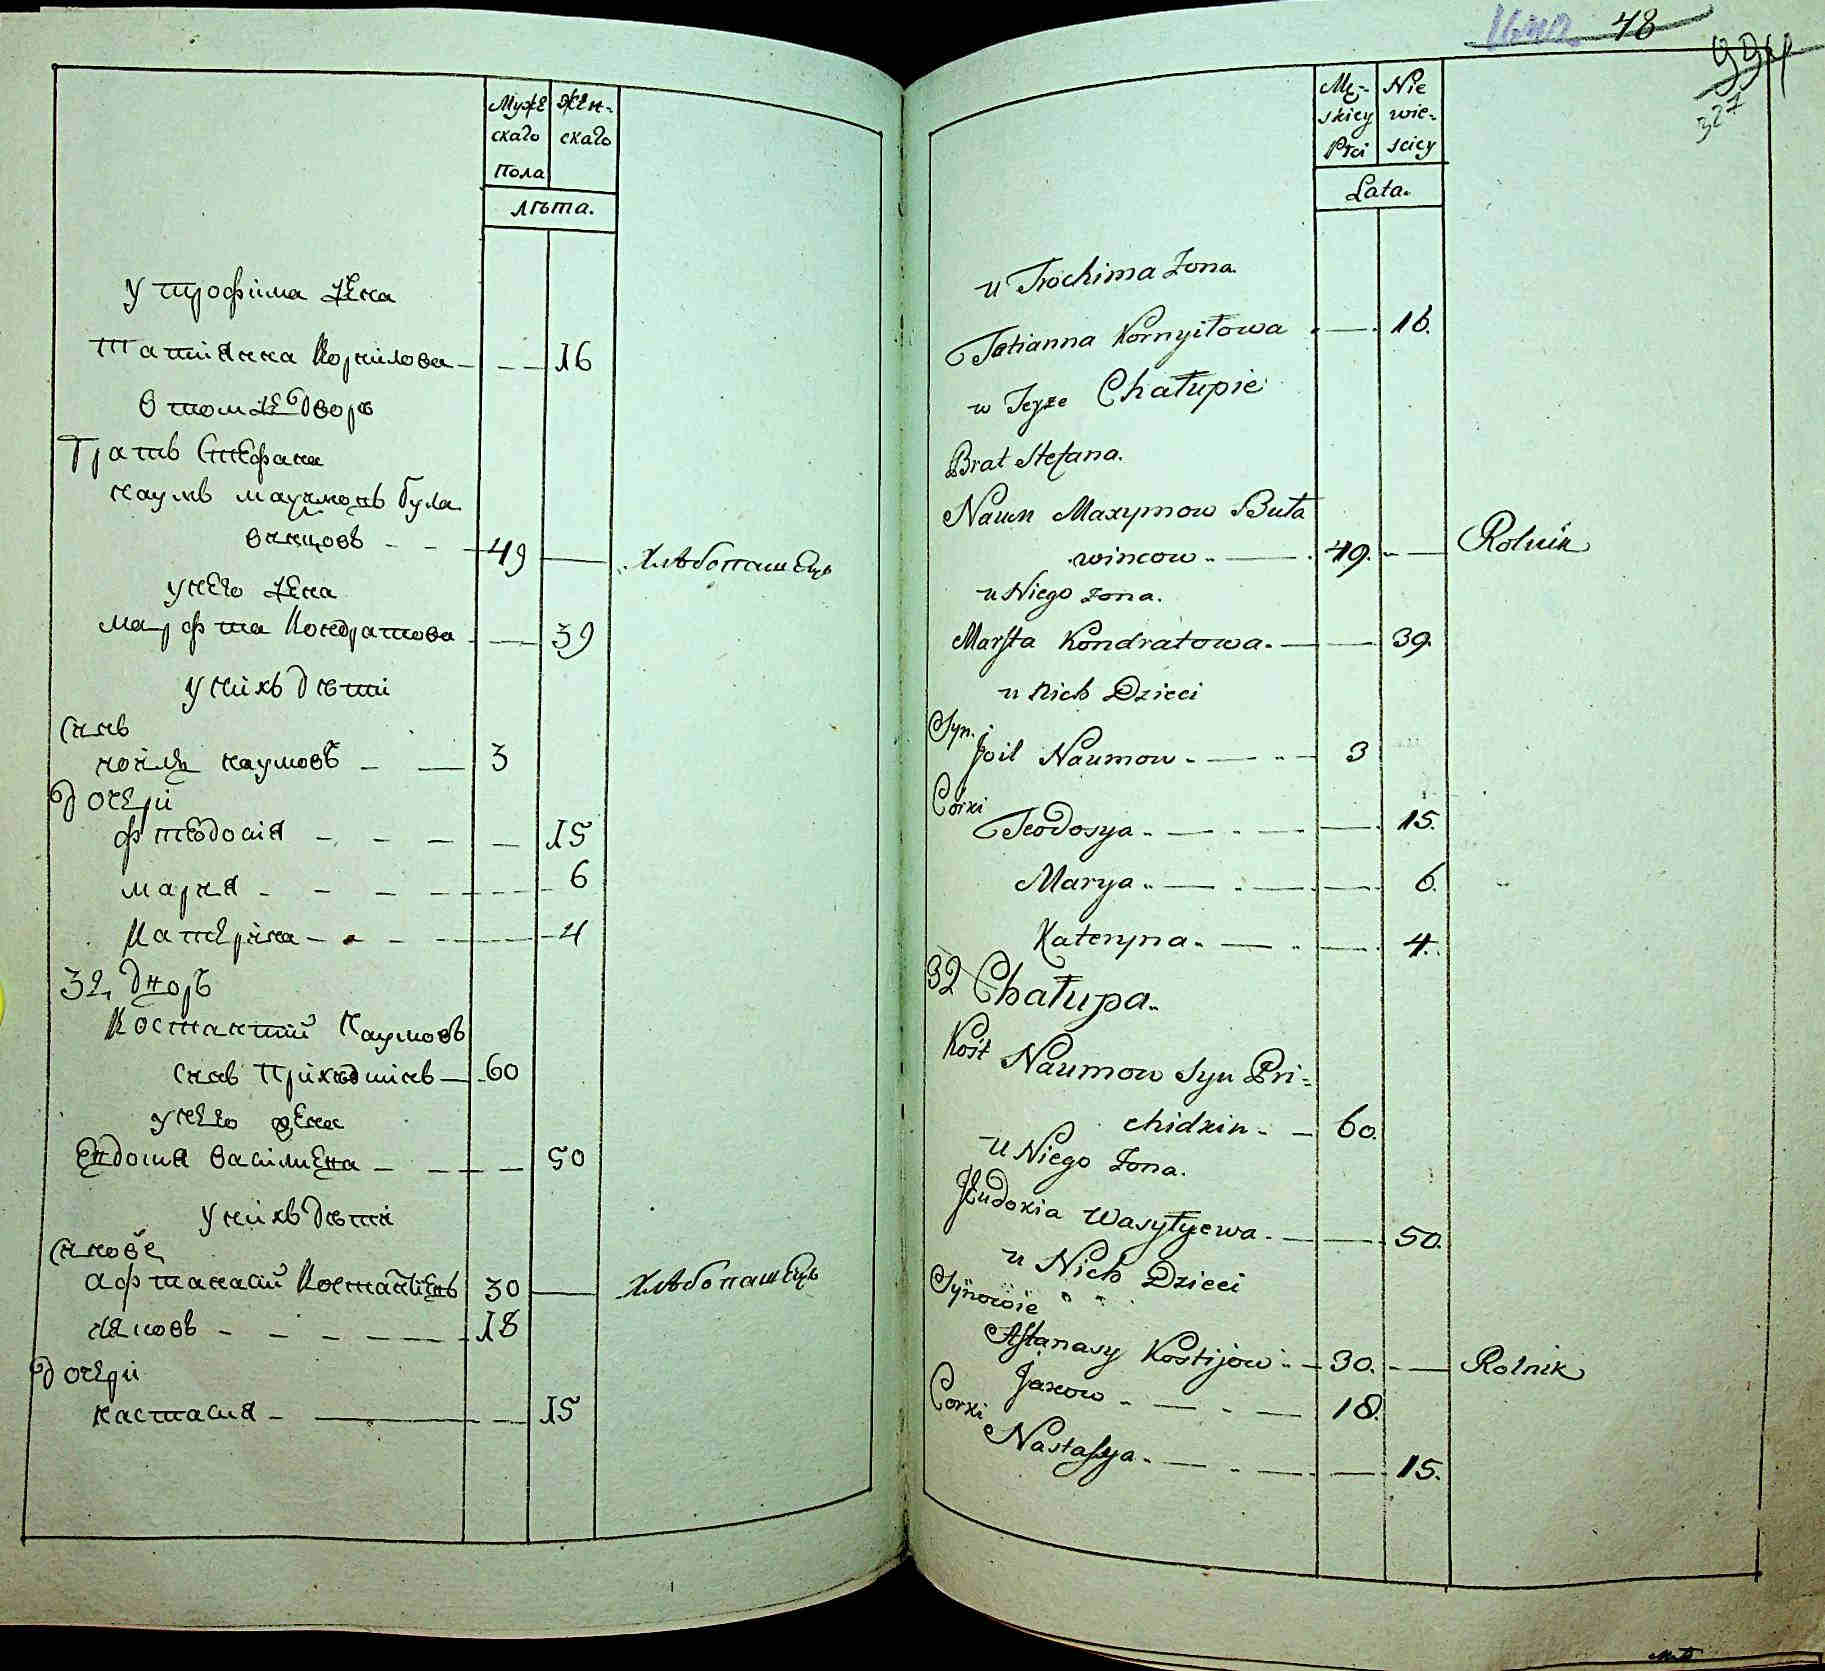 Муже
скаго
пола
Жен-
скаго
лѣта.
У трофима жена
татіанна Корнилова - - - 16
в томже дворѣ
братъ Стефана
наумъ маѯимовъ була
винцовъ - - 49 — Хлѣбопашецъ
у него жена
марфта Кондратова - — 39
у нихъ дѣти
Синъ
иоиль наумовъ - — 3
дочери
фтеодосиа - - - - — 15
мариа - - - - - 6
Катерина - - - - - 4
32, дворъ
Костантий Наумовъ
синъ Прихидкинъ — 60
у него жена
Евдокиа василиева - - - — 50
у нихъ дѣти
Синове
афтанасий Костантиевъ 30 — Хлѣбопашецъ
иаковъ - - - - - 18
дочери
настасиа - — - 15
48
994
327
Mę-
skiey
Płci
Nie
wie-
sciey
Lata.
u Trochima Żona.
Tatianna Kornyiłowa . — . 16.
w Teyże Chałupie
Brat Stefana.
Naum Maxymow Buła
wincow .. — . 49. - — Rolnik
u Niego żona.
Marfta Kondratowa. — — 39.
u Nich Dzieci
Syn.
Joil Naumow - — .. — 3
Corki
Teodosya - — . — — 15.
Marya .. — . — — 6.
Kateryna. — . — 4.
32 Chałupa..
Kost Naumow Syn Pri=
chidkin - — 60.
u Niego Żona.
Eudoxia Wasylyewa. — — 50.
u Nich Dzieci
Synowie
Aftanasy Kostijow .. — 30. - — Rolnik
Jakow - — . — 18.
Corki
Nastasya - — . — — 15.